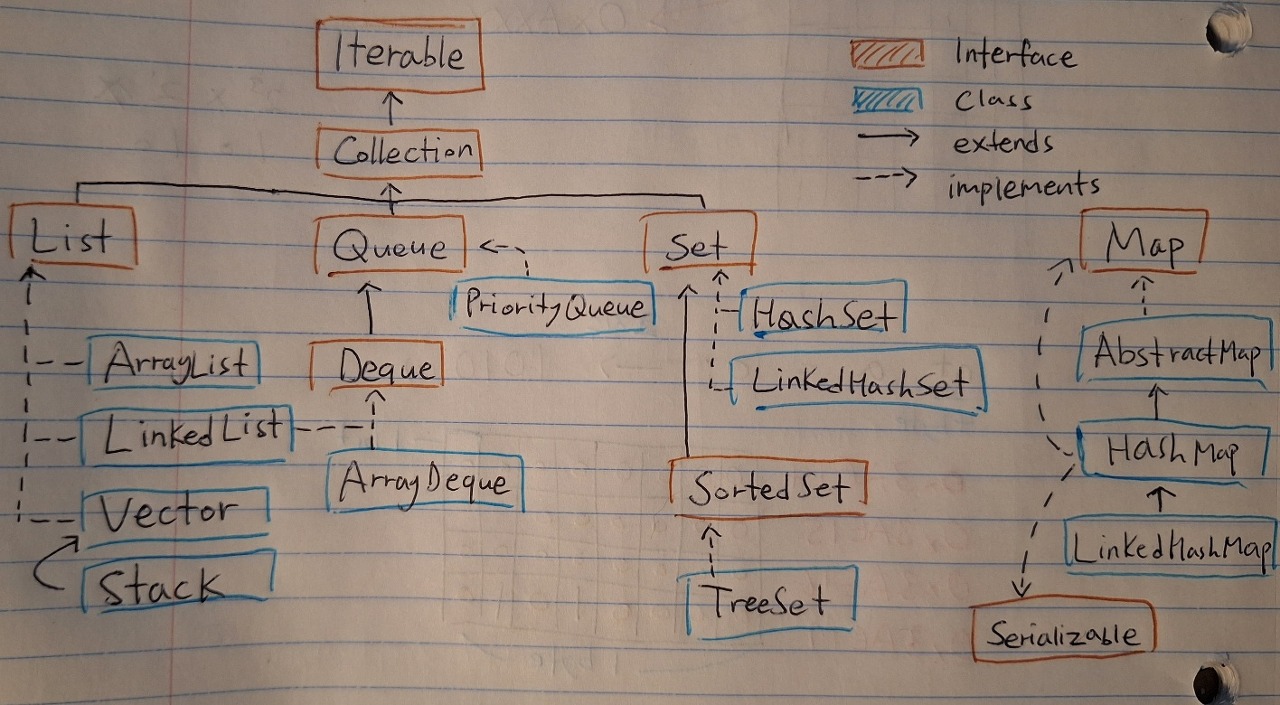 Iterable
Collection
List
Queue
Set
PriorityQueue
HashSet
ArrayList
Deque
LinkedHashSet
LinkedList
ArrayDeque
Vector
Stack
SortedSet
TreeSet
Interface
Class
extends
implements
Map
AbstractMap
HashMap
LinkedHashMap
Serializable